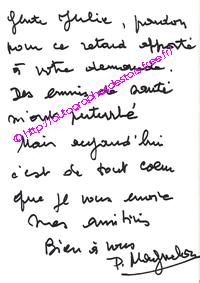 Gente Julie, pardon
pour ce retard apporté
à votre demande.
Des ennuis de santé
m'ont perturbé
Mais aujourd'hui
c'est de tout coeur
que je vous envoie
mes amitiés
Bien à vous
P. Maguelon
©http://autographesdestars.free.fr